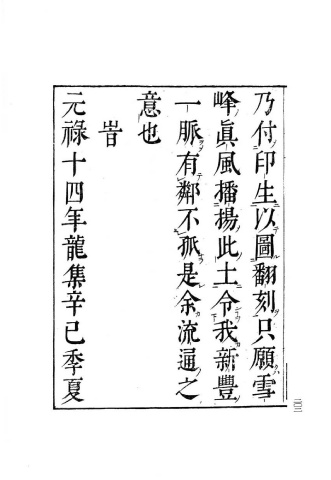 乃付印生以圖翻刻只願雪
峰眞風播揚此土令我新豐
一脈有鄰不孤是余流通之
意也
旹
元祿十四年龍集辛巳季夏
二〇二